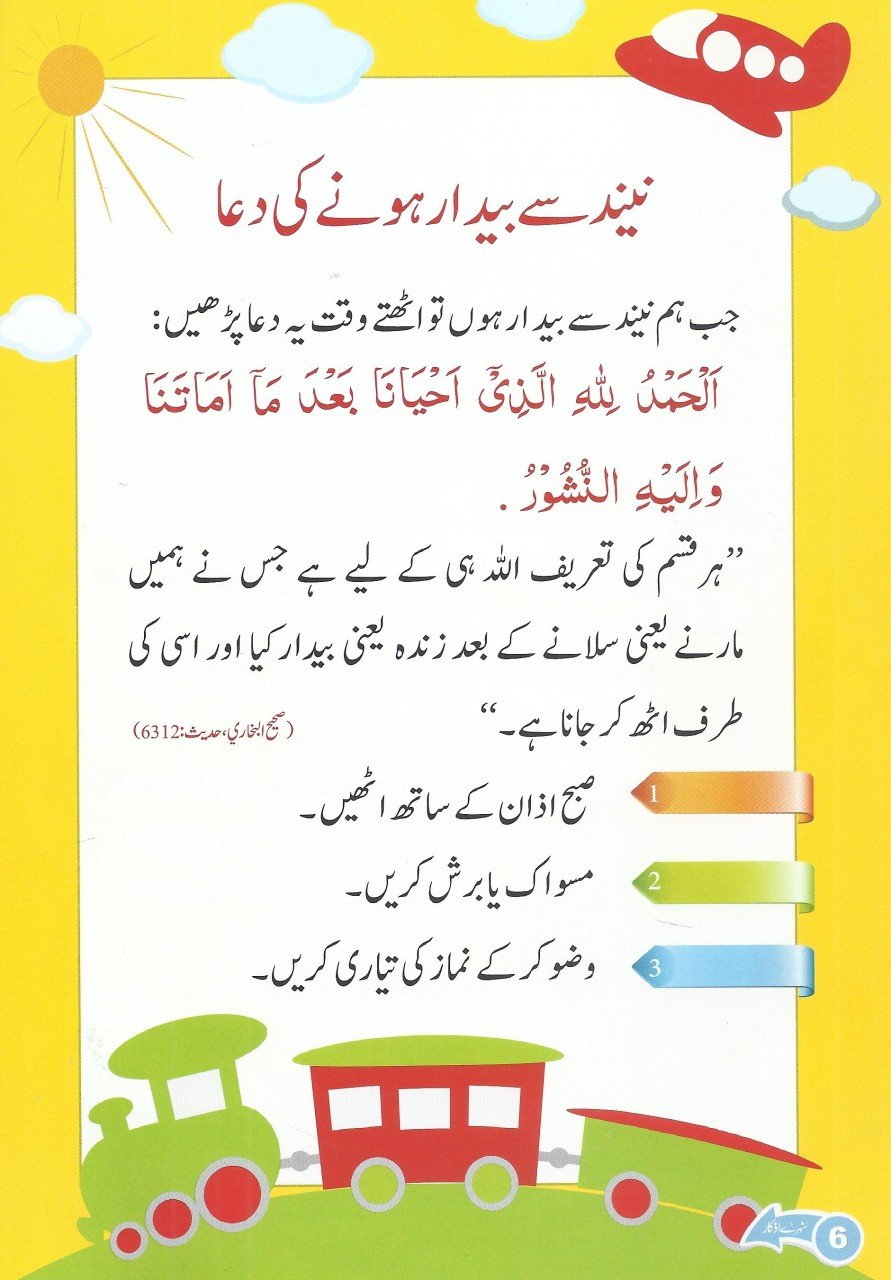 نیند سے بیدار ہونے کی دعا
جب ہم نیند سے بیدار ہوں تو اٹھتے وقت یہ دعا پڑھیں:
اَلْحَمْدُ لِلّٰهِ الَّذِیْٓ اَحْيَانَا بَعْدَ مَآ اَمَاتَنَا
وَاِلَيْهِ النُّشُوْرُ .
”ہر قسم کی تعریف اللہ ہی کے لیے ہے جس نے ہمیں
مارنے یعنی سلانے کے بعد زندہ یعنی بیدار کیا اور اسی کی
طرف اٹھ کر جانا ہے۔“ (صحیح البخاري، حدیث:6312)
1 صبح اذان کے ساتھ اٹھیں۔
2 مسواک یا برش کریں۔
3 وضو کر کے نماز کی تیاری کریں۔
6 سنہرے اذکار